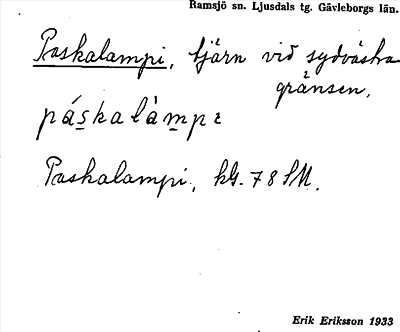 Ramsjö sn. Ljusdals tg. Gävleborgs län.
Paskalampi, tjärn vid sydvästra
gränsen.
páskalàmpi
Paskalampi, kG. 78 SM.
Erik Eriksson 1933